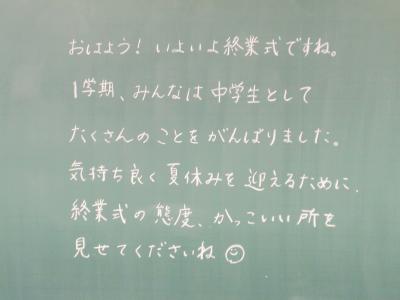 おはよう！いよいよ終業式ですね。
1学期、みんなは中学生として
たくさんのことをがんばりました。
気持ち良く夏休みを迎えるために、
終業式の態度、かっこいい所を
見せてくださいね☺